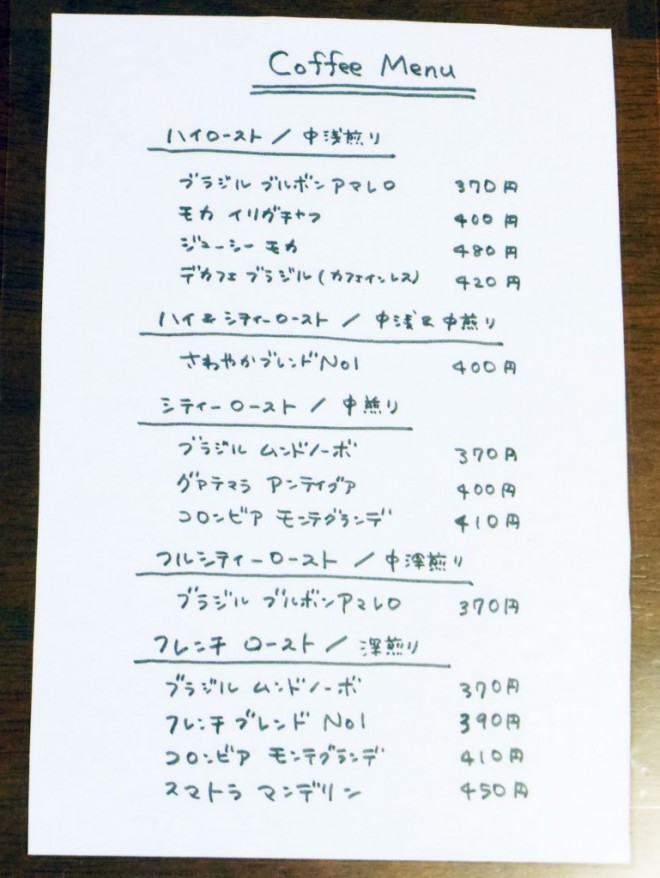 Coffee Menu
ハイロースト / 中浅煎り
ブラジル ブルボンアマレロ 370円
モカ イリガチャフ 400円
ジューシー モカ 480円
デカフェ ブラジル(カフェインレス) 420円
ハイ&シティーロースト / 中浅&中煎り
さわやかブレンドNo1 400円
シティーロースト / 中煎り
ブラジル ムンドノーボ 370円
グァテマラ アンティグア 400円
コロンビア モンテグランデ 410円
フルシティーロースト / 中深煎り
ブラジル ブルボンアマレロ 370円
フレンチ ロースト / 深煎り
ブラジル ムンドノーボ 370円
フレンチブレンド No1 390円
コロンビア モンテグランデ 410円
スマトラ マンデリン 450円